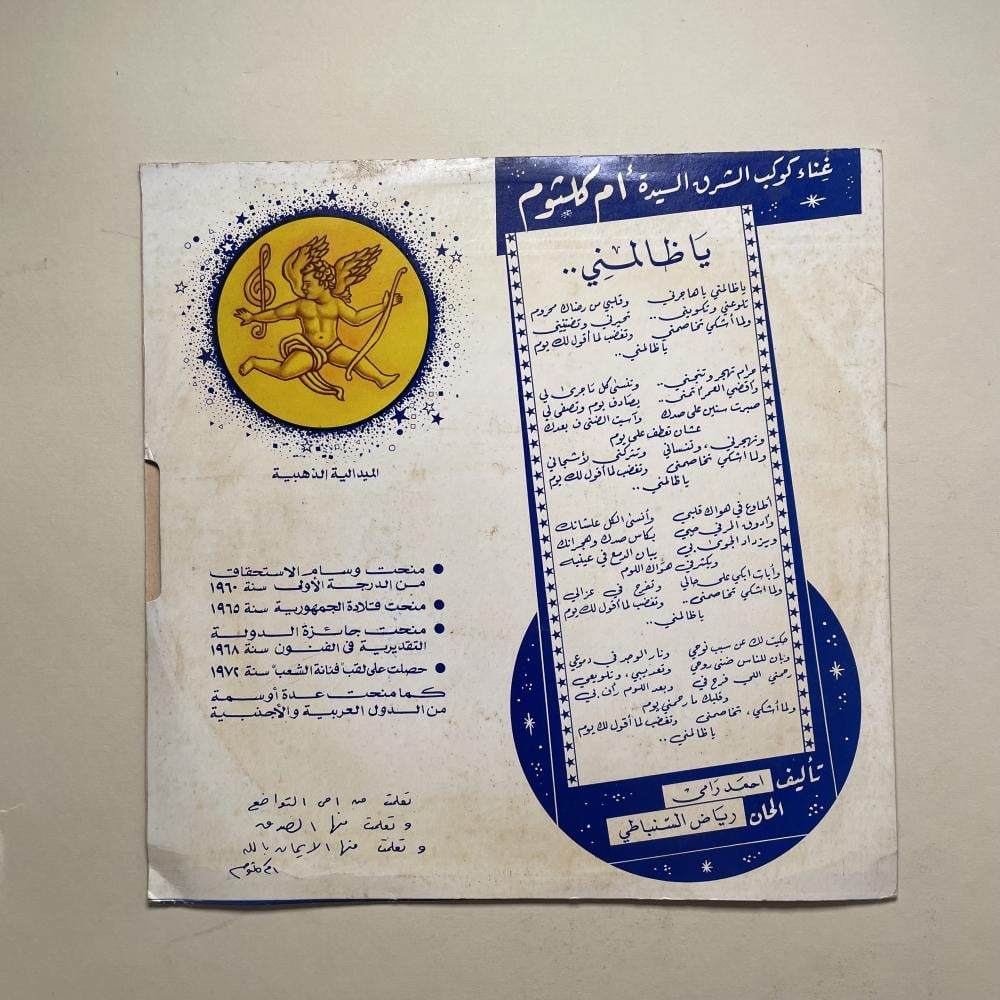 غناء كوكب الشرق السيدة أم كلثوم
يا ظالمني ..
يا ظالمني يا هاجرني وقلبي من رضاك محروم
تلوعني وتكويني .. تحيرني وتضنيني
ولما أشكي تخاصمني وتغضب لما أقول لك يوم
يا ظالمني ..
حرام تهجر وتتجنى .. وتنسى كل ما جرى لي
وأقضي العمر أتمنى .. يصادف يوم وتصفى لي
صبرت سنين على صدك وقاسيت الضنى ف بعدك
عشان تعطف علي يوم
وتهجرني ، وتنساني وتتركني لأشجاني
ولما أشكي تخاصمني وتغضب لما أقول لك يوم
يا ظالمني ..
أطاوع في هواك قلبي وأنسى الكل علشانك
وأدوق المر في حبي بكاس صدك وهجرانك
ويزداد الجوى بي يبان الدمع في عينيه
ويكتر في هواك اللوم
وأبات ابكي على حالي وتفرح في عزالي
ولما اشكي تخاصمني .. وتغضب لما أقول لك يوم
يا ظالمني ..
حكيت لك عن سبب نوحي ونار الوجد في دموعي
وبان للناس ضنى روحي وتعذيبي ، وتلويعي
رحمني اللي فرح في وبعد اللوم رأف بي
وقلبك ما رحمني يوم
ولما أشكي ، تخاصمني وتغضب لما أقول لك يوم
يا ظالمني ..
تأليف احمد رامى
الحان رياض السنباطي
الميدالية الذهبية
• منحت وسام الاستحقاق
من الدرجة الأولى سنة ١٩٦٠
• منحت قلادة الجمهورية سنة ١٩٦٥
• منحت جائزة الدولة
التقديرية فى الفنون سنة ١٩٦٨
• حصلت على لقب "فنانة الشعب" سنة ١٩٧٢
كما منحت عدة أوسمة
من الدول العربية والأجنبية
تعلمت من امى التواضع
و تعلمت منها الصدق
و تعلمت منها الايمان بالله
ام كلثوم